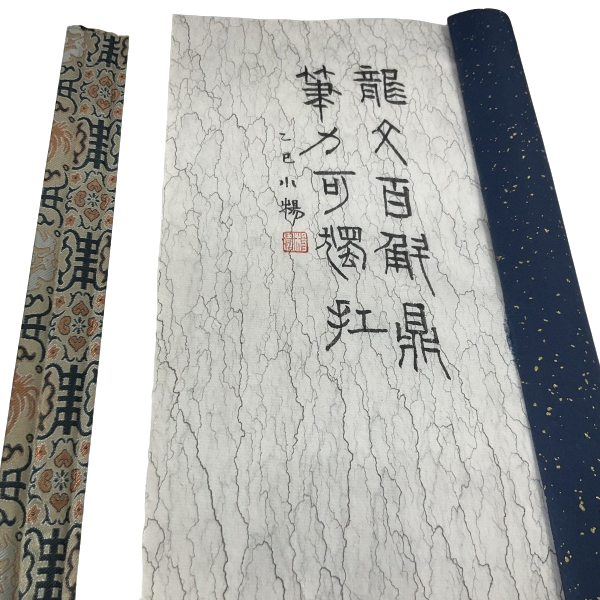 龍文百斛鼎
筆力可獨扛
乙巳小楊